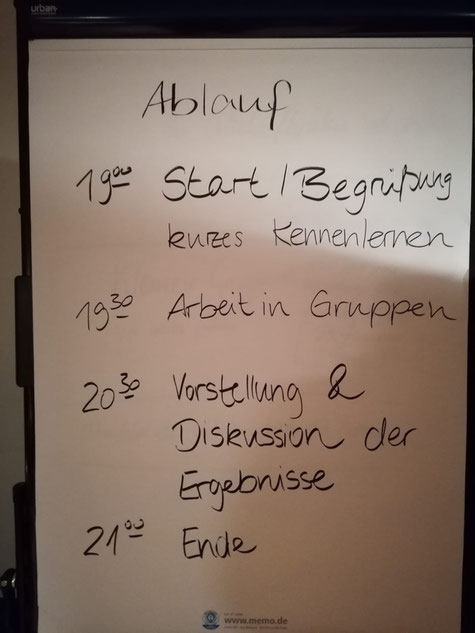 urban
Ablauf
19⁰⁰ Start / Begrüßung
kurzes Kennenlernen
19³⁰ Arbeit in Gruppen
20³⁰ Vorstellung &
Diskussion der
Ergebnisse
21⁰⁰ Ende
www.memo.de